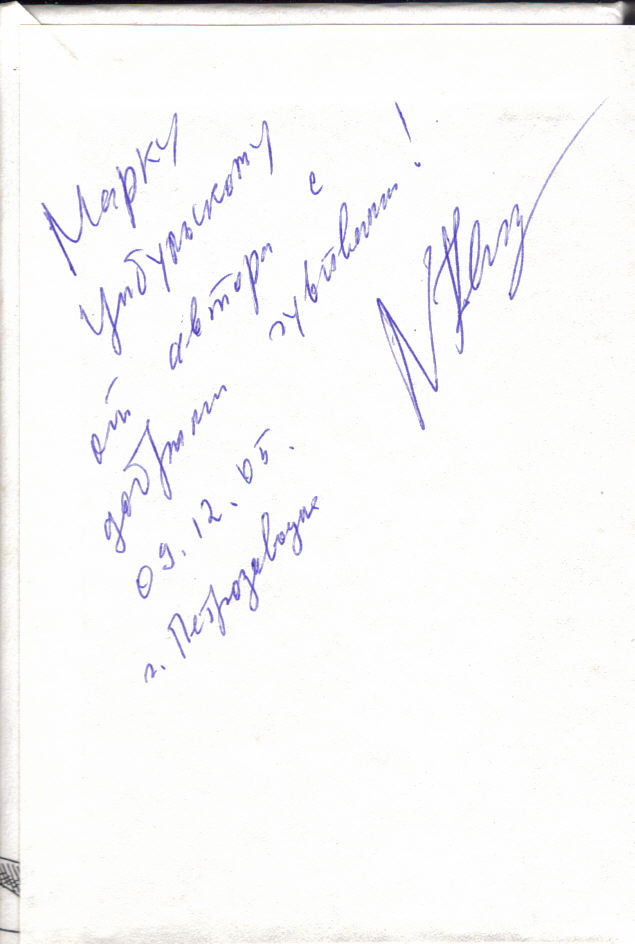 Марку
Цибульскому
от автора с
добрыми чувствами!
09.12.05.
г. Петрозаводск